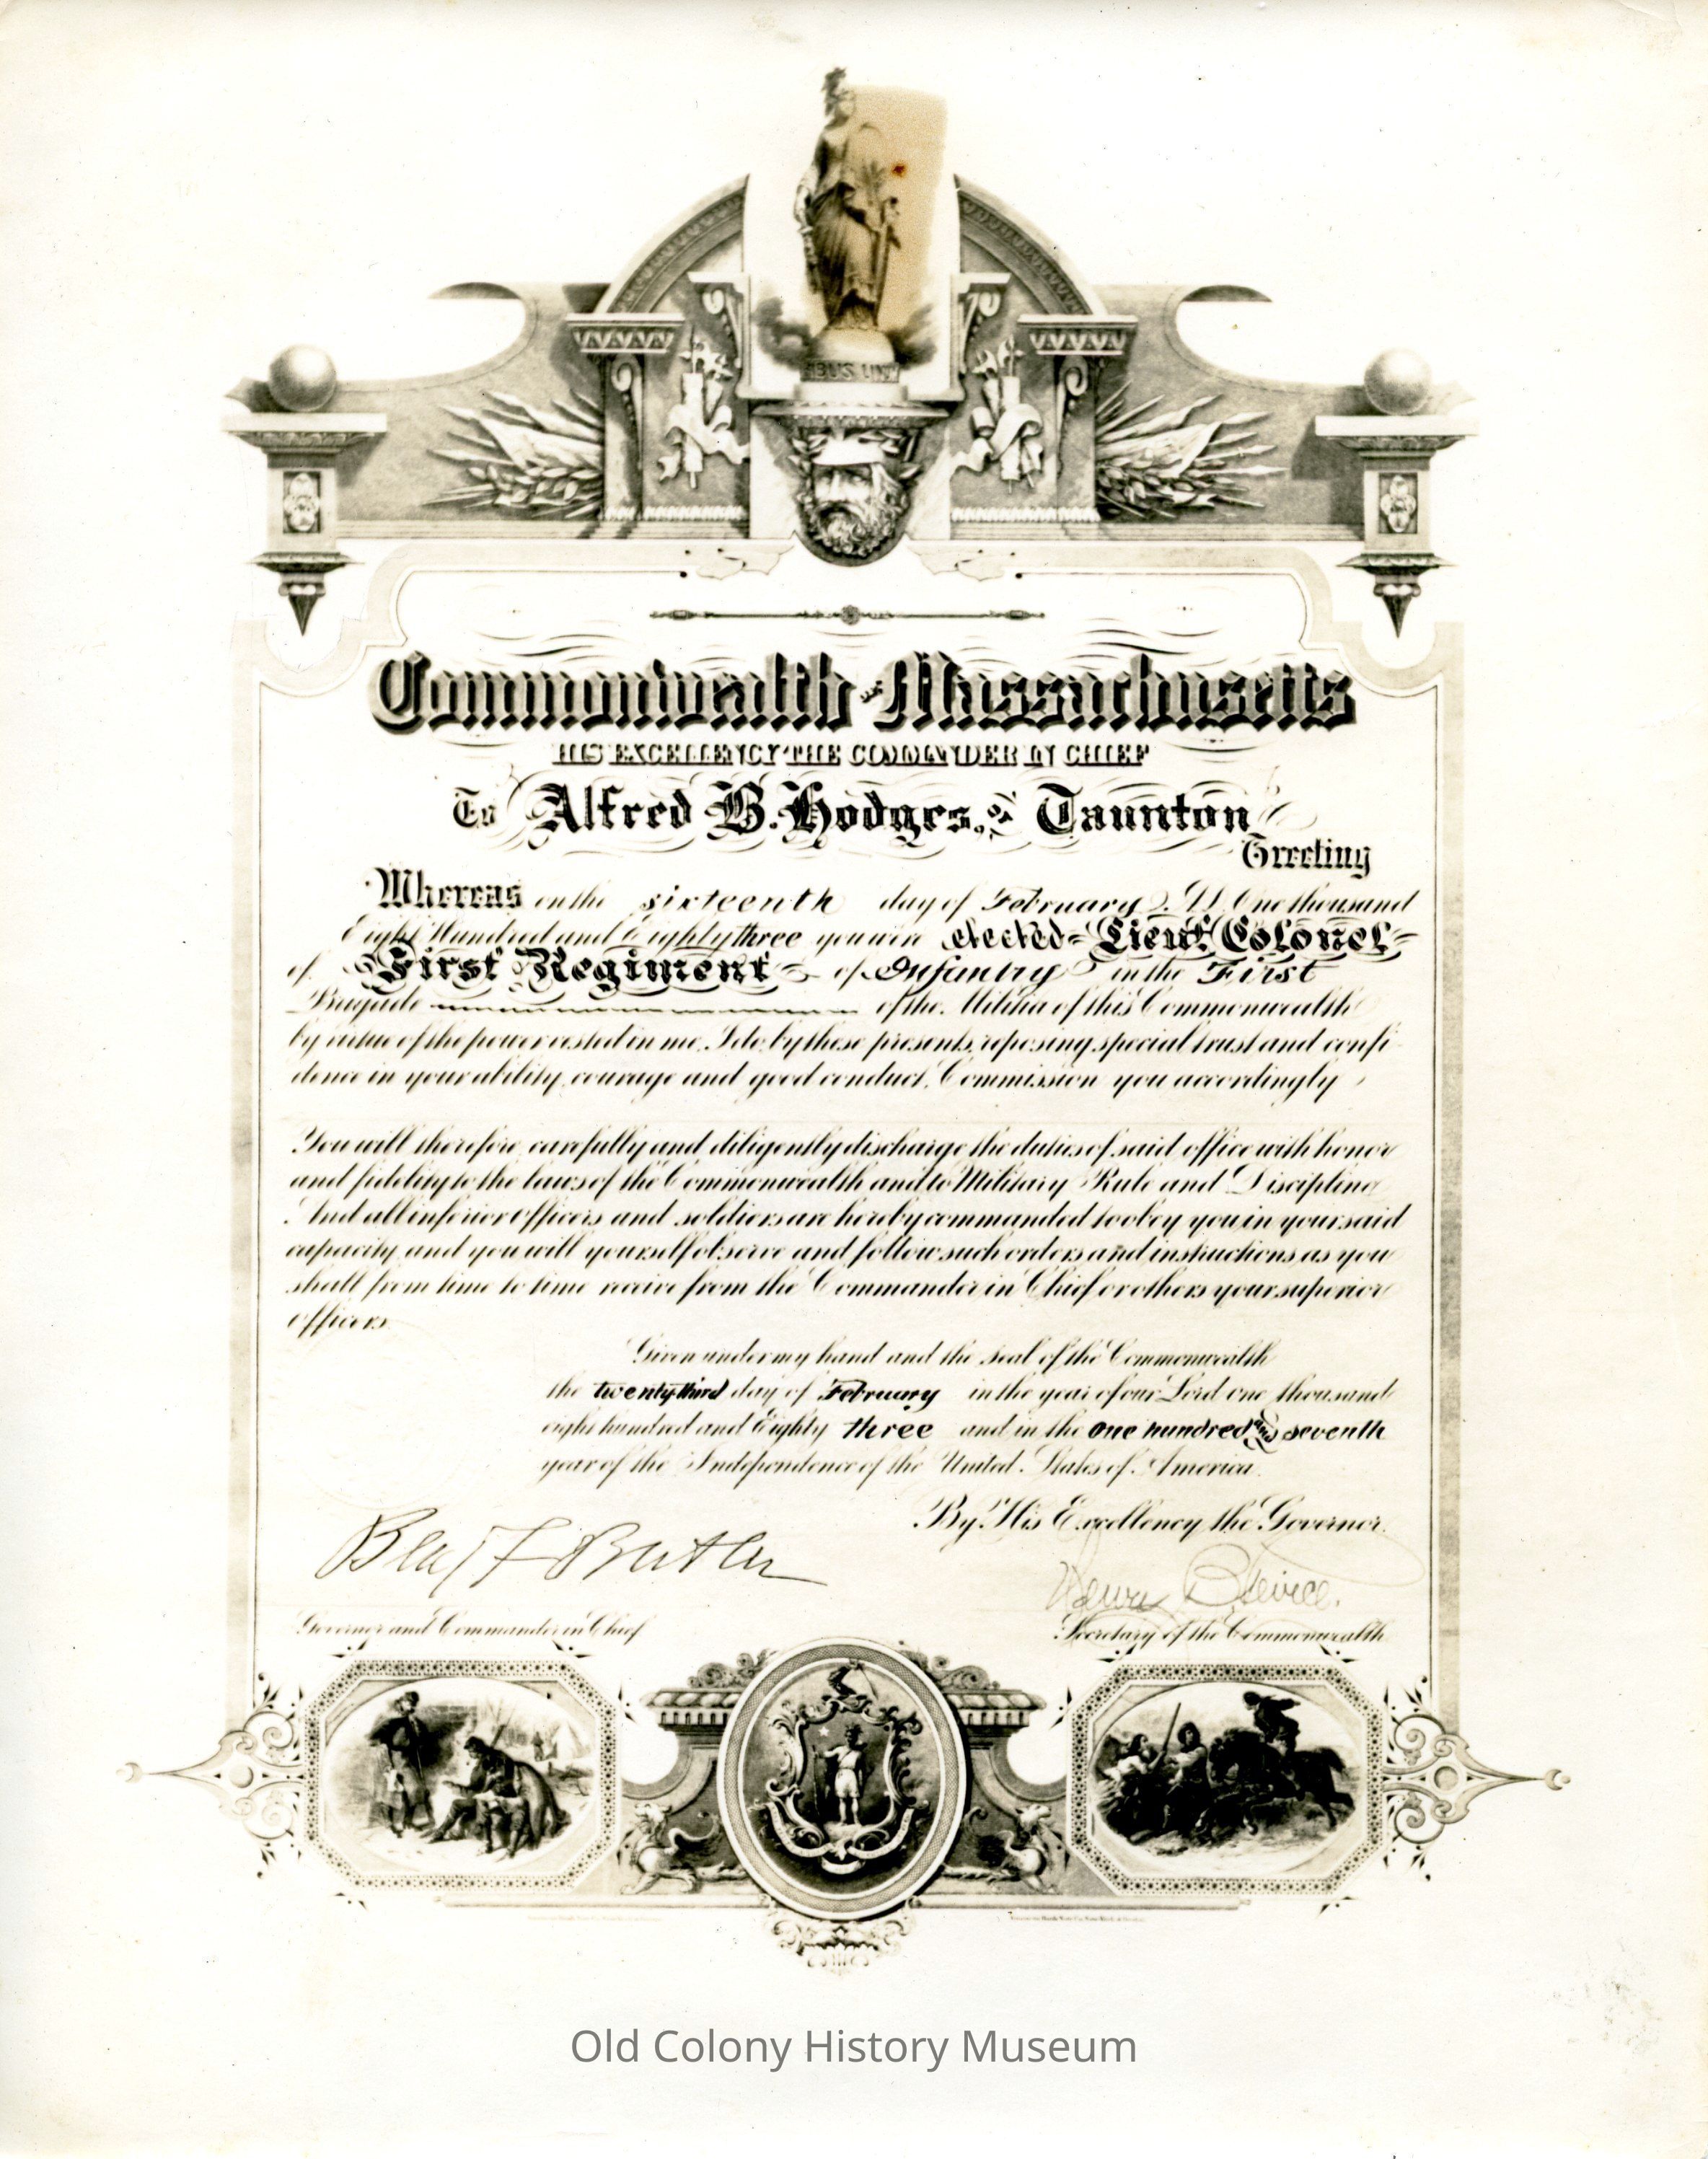 Commonwealth of Massachusetts
HIS EXCELLENCY THE COMMANDER IN CHIEF
To Alfred B. Hodges, of Taunton
Greeting
Whereas on the sixteenth day of February A.D. One thousand
Eight Hundred and Eighty three you were elected Lieut Colonel
of First Regiment of Infantry in the First
Brigade of the Militia of this Commonwealth
by virtue of the power vested in me, I do, by these presents, reposing special trust and confi-
dence in your ability, courage and good conduct, Commission you accordingly
You will therefore carefully and diligently discharge the duties of said office with honor
and fidelity to the laws of the Commonwealth and to Military Rule and Discipline
And all inferior officers and soldiers are hereby commanded to obey you in your said
capacity, and you will yourself observe and follow such orders and instructions as you
shall from time to time receive from the Commander in Chief or others your superior
officers.
Given under my hand and the seal of the Commonwealth
the twenty-third day of February in the year of our Lord one thousand
eight hundred and Eighty three and in the one hundred and seventh
year of the Independence of the United States of America.
By His Excellency the Governor.
Benj F Butler
Henry B Peirce.
Governor and Commander in Chief
Secretary of the Commonwealth
Old Colony History Museum